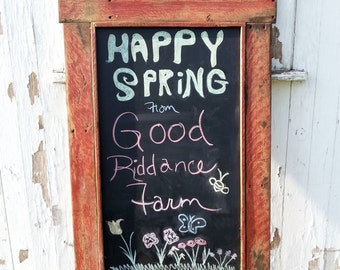 HAPPY
SPRING
From
Good
Riddance
Farm